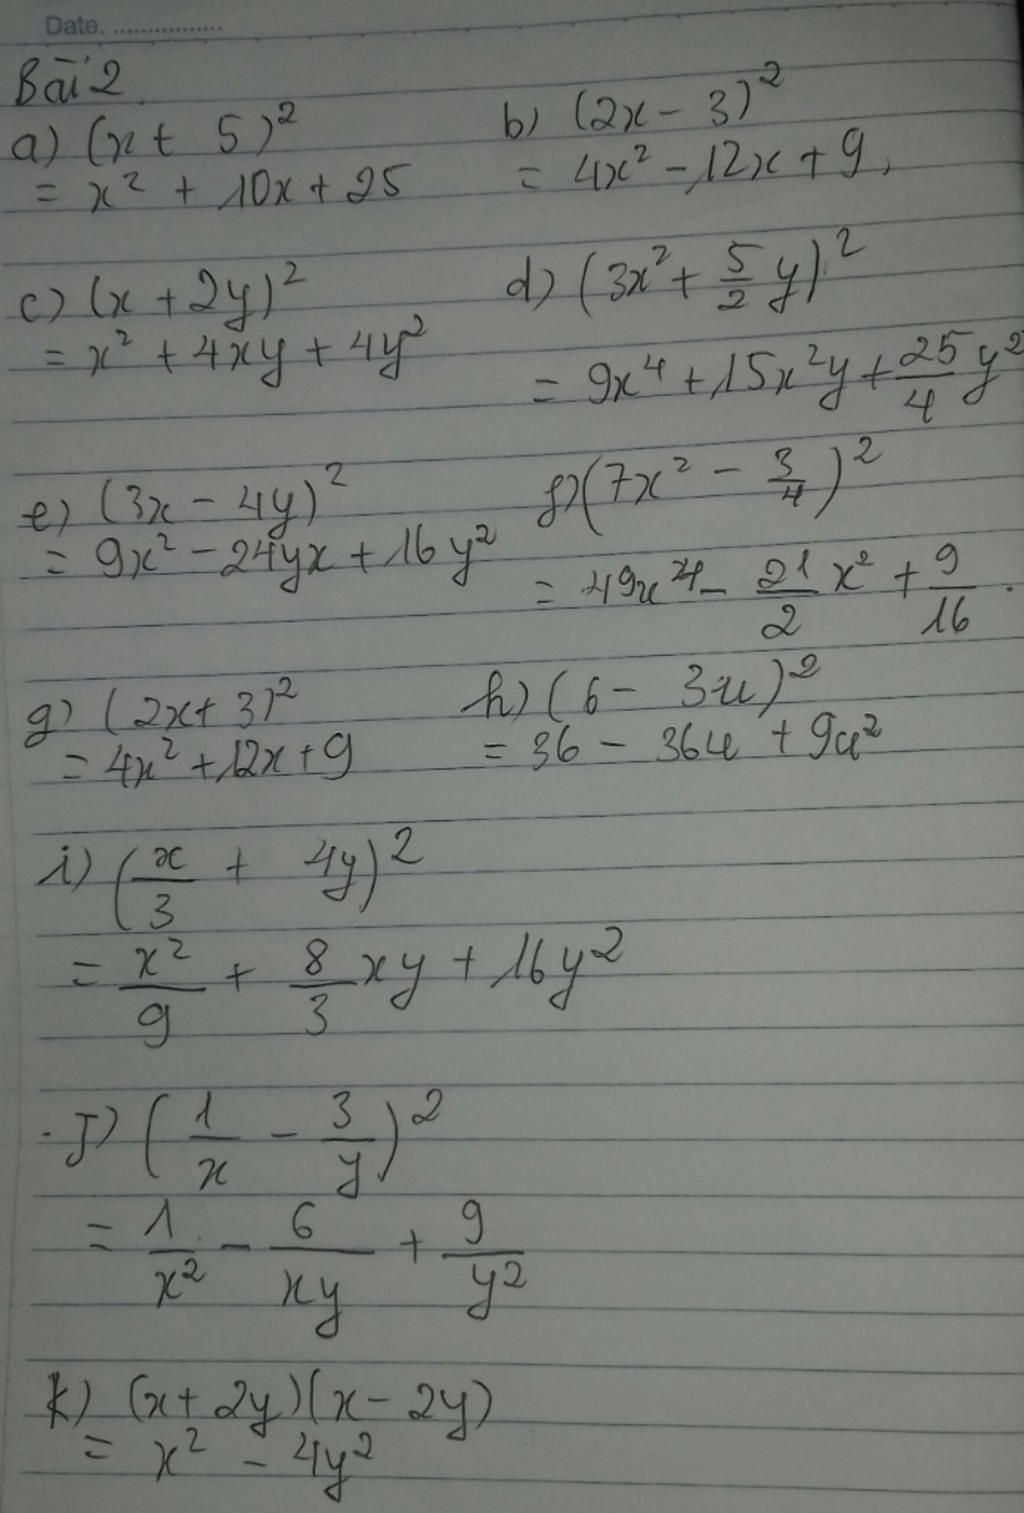 Date. ................
Bài 2.
a) (x + 5)²
= x² + 10x + 25
b) (2x - 3)²
= 4x² - 12x + 9.
c) (x + 2y)²
= x² + 4xy + 4y²
d) (3x² + 5/2 y)²
= 9x⁴ + 15x²y + 25/4 y²
e) (3x - 4y)²
= 9x² - 24yx + 16y²
f) (7x² - 3/4)²
= 49x⁴ - 21/2 x² + 9/16.
g) (2x + 3)²
= 4x² + 12x + 9
h) (6 - 3u)²
= 36 - 36u + 9u²
i) (x/3 + 4y)²
= x²/9 + 8/3 xy + 16y²
J) (1/x - 3/y)²
= 1/x² - 6/xy + 9/y²
k) (x + 2y)(x - 2y)
= x² - 4y²